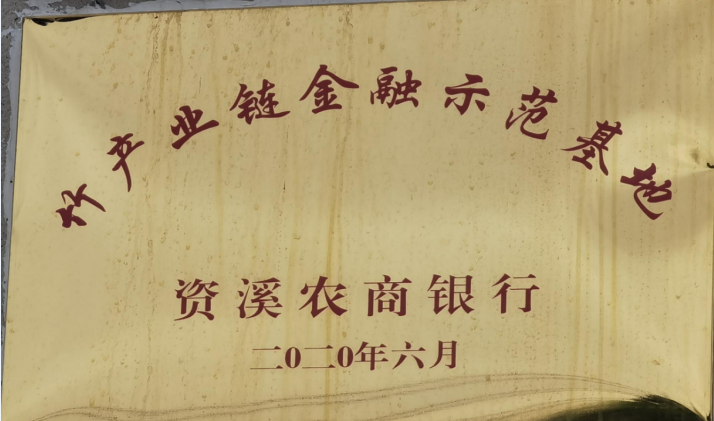 竹产业链金融示范基地
资溪农商银行
二0二0年六月